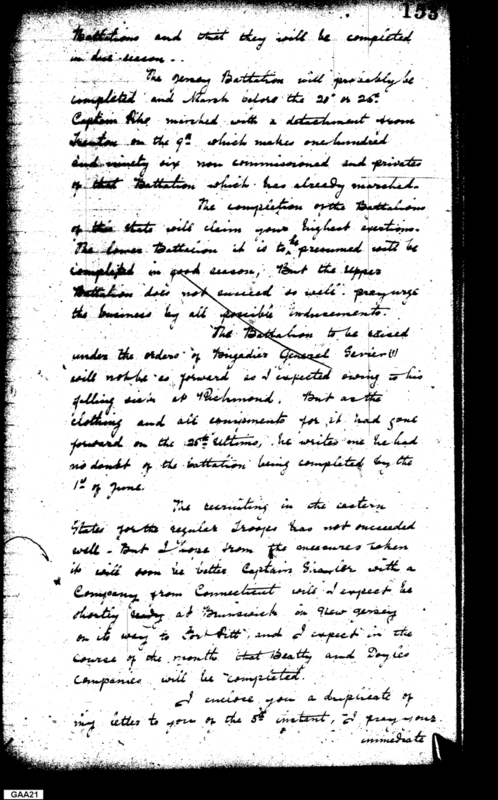 153
Battalions and that they will be completed
in due season..
The Jersey Battalion will probably be
completed and March before the 20th or 25th.
Captain Pike marched with a detachment from
Trenton on the 9th which makes one hundred
and ninety six non commissioned and privates
of that Battalion which has already marched.
The completion of the Battalions
of this State will claim your highest exertions.
The lower Battalion it is to be presumed will be
completed in good season; But the upper
Battalion does not succeed so well. pray urge
the business by all possible inducements.
The Battalion to be raised
under the orders of Brigadier General Sevier (1)
will not be so forward as I expected owing to his
falling sick at Richmond. But as the
clothing and all components for it had gone
forward on the 25th Ultimo, he writes me he had
no doubt of the battalion being completed by the
1st of June.
The recruiting in the eastern
States for the regular Troops has not succeeded
well - But I hope from the measures taken
it will soon be better Captain with a
Company from Connecticut will I expect be
shortly ready at Brunswick in New Jersey
on its way to Fort Pitt and I expect in the
course of the month that Beatty and Doyles
Companies will be completed.
I enclose you a duplicate of
my letter to you of the 5th instant, I pray your
immediate
GAA21